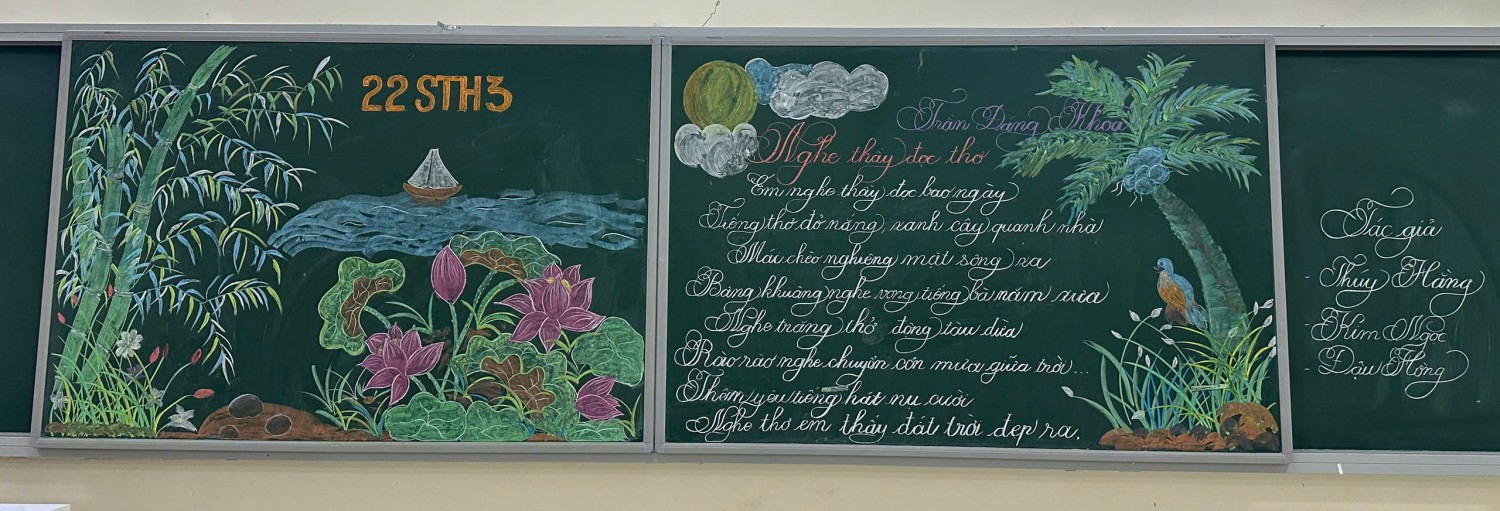 22 STH3
Trần Đăng Khoa
Nghe thầy đọc thơ
Em nghe thầy đọc bao ngày
Tiếng thơ đỏ nắng, xanh cây quanh nhà
Mái chèo nghiêng mặt sông xa
Bâng khuâng nghe vọng tiếng bà năm xưa
Nghe trăng thở động tàu dừa
Rào rào nghe chuyển cơn mưa giữa trời...
Thêm yêu tiếng hát nụ cười
Nghe thơ em thấy đất trời đẹp ra.
Tác giả
- Thúy Hằng
- Kim Ngọc
- Đậu Hồng